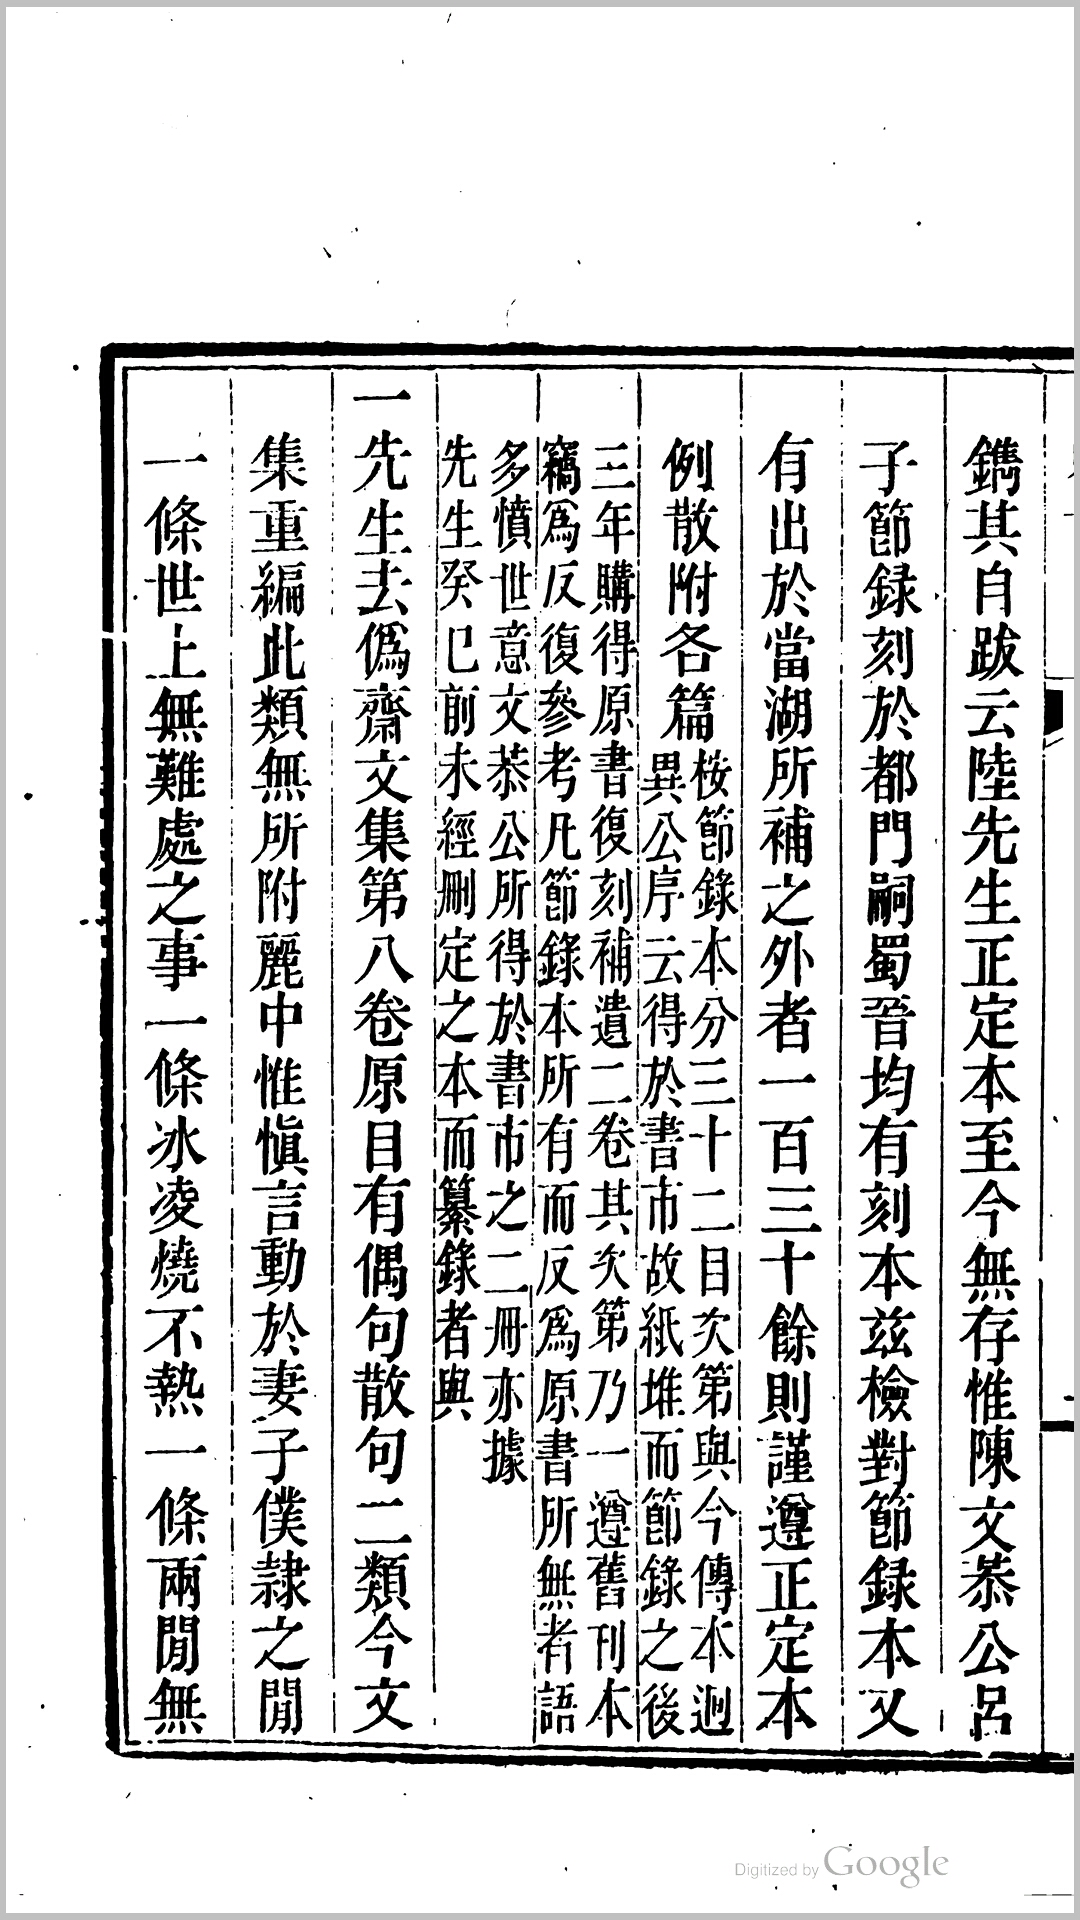 鐫其自跋云陸先生正定本至今無存惟陳文恭公呂
子節錄刻於都門嗣蜀晉均有刻本茲檢對節錄本又
有出於當湖所補之外者一百三十餘則謹遵正定本
例散附各篇
桉節錄本分三十二目次第與今傳本迥
異公序云得於書市故紙堆而節錄之後
三年購得原書復刻補遺二卷其次第乃一遵舊刊本
竊爲反復參考凡節錄本所有而反爲原書所無者語
多憤世意文恭公所得於書市之二冊亦據
先生癸巳前未經刪定之本而纂錄者與
一先生去僞齋文集第八卷原目有偶句散句二類今文
集重編此類無所附麗中惟愼言動於妻子僕隸之閒
一條世上無難處之事一條冰凌燒不熱一條兩閒無
Digitized by Google